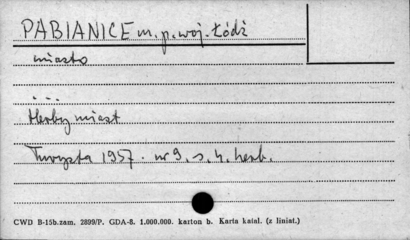 PABIANICE m. p. woj. Łódź
miasto
...
Herby miast
Turysta 1957. nr 9. s. 4. herb.
CWD B-15b. zam. 2899/P. GDA-8. 1.000.000. karton b. Karta katal. (z liniat.)